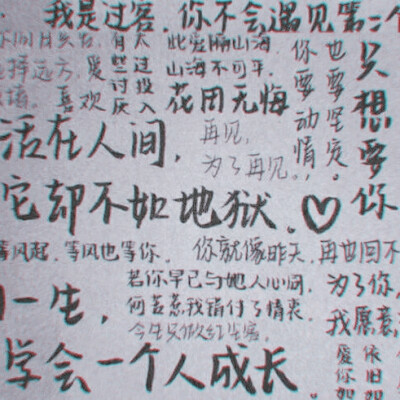 我是过客,你不会遇见第二个
有 此爱隔山海,
择远方,爱 些过 山海不可平.
喜欢 讨投 花用无悔
厌入
你要动情,
也要坚定.
只想要你
活在人间,
再见,
为了再见.
它却不如地狱.♡
等风起,等风也等你.
你就像昨天,再也回不
若你早已与她人心同,
何苦惹我错付了情衷
今生只做红尘客,
为了你,
我愿意
一生,
学会一个人成长.
爱你如
依旧如